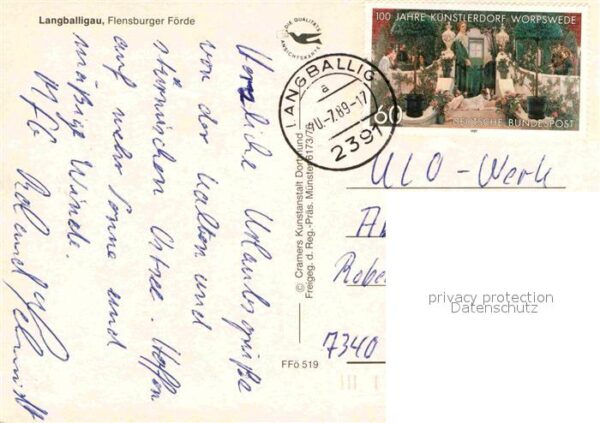 Langballigau, Flensburger Förde
DIE QUALITÄTS
ANSICHTSKARTE
100 JAHRE KÜNSTLERDORF WORPSWEDE
60
DEUTSCHE BUNDESPOST
LANGBALLIG
a
-7.89-17
2391
Herzliche Urlaubsgrüße
von der kalten und
stürmischen Ostsee. Hoffen
auf mehr Sonne und
mäßige Winde.
MfG
Schmidt
© Cramers Kunstanstalt Dortmund
Freigeg. d. Reg.-Präs. Münster 6173/76
FFö 519
ULO-Werk
Robe
7340
privacy protection
Datenschutz